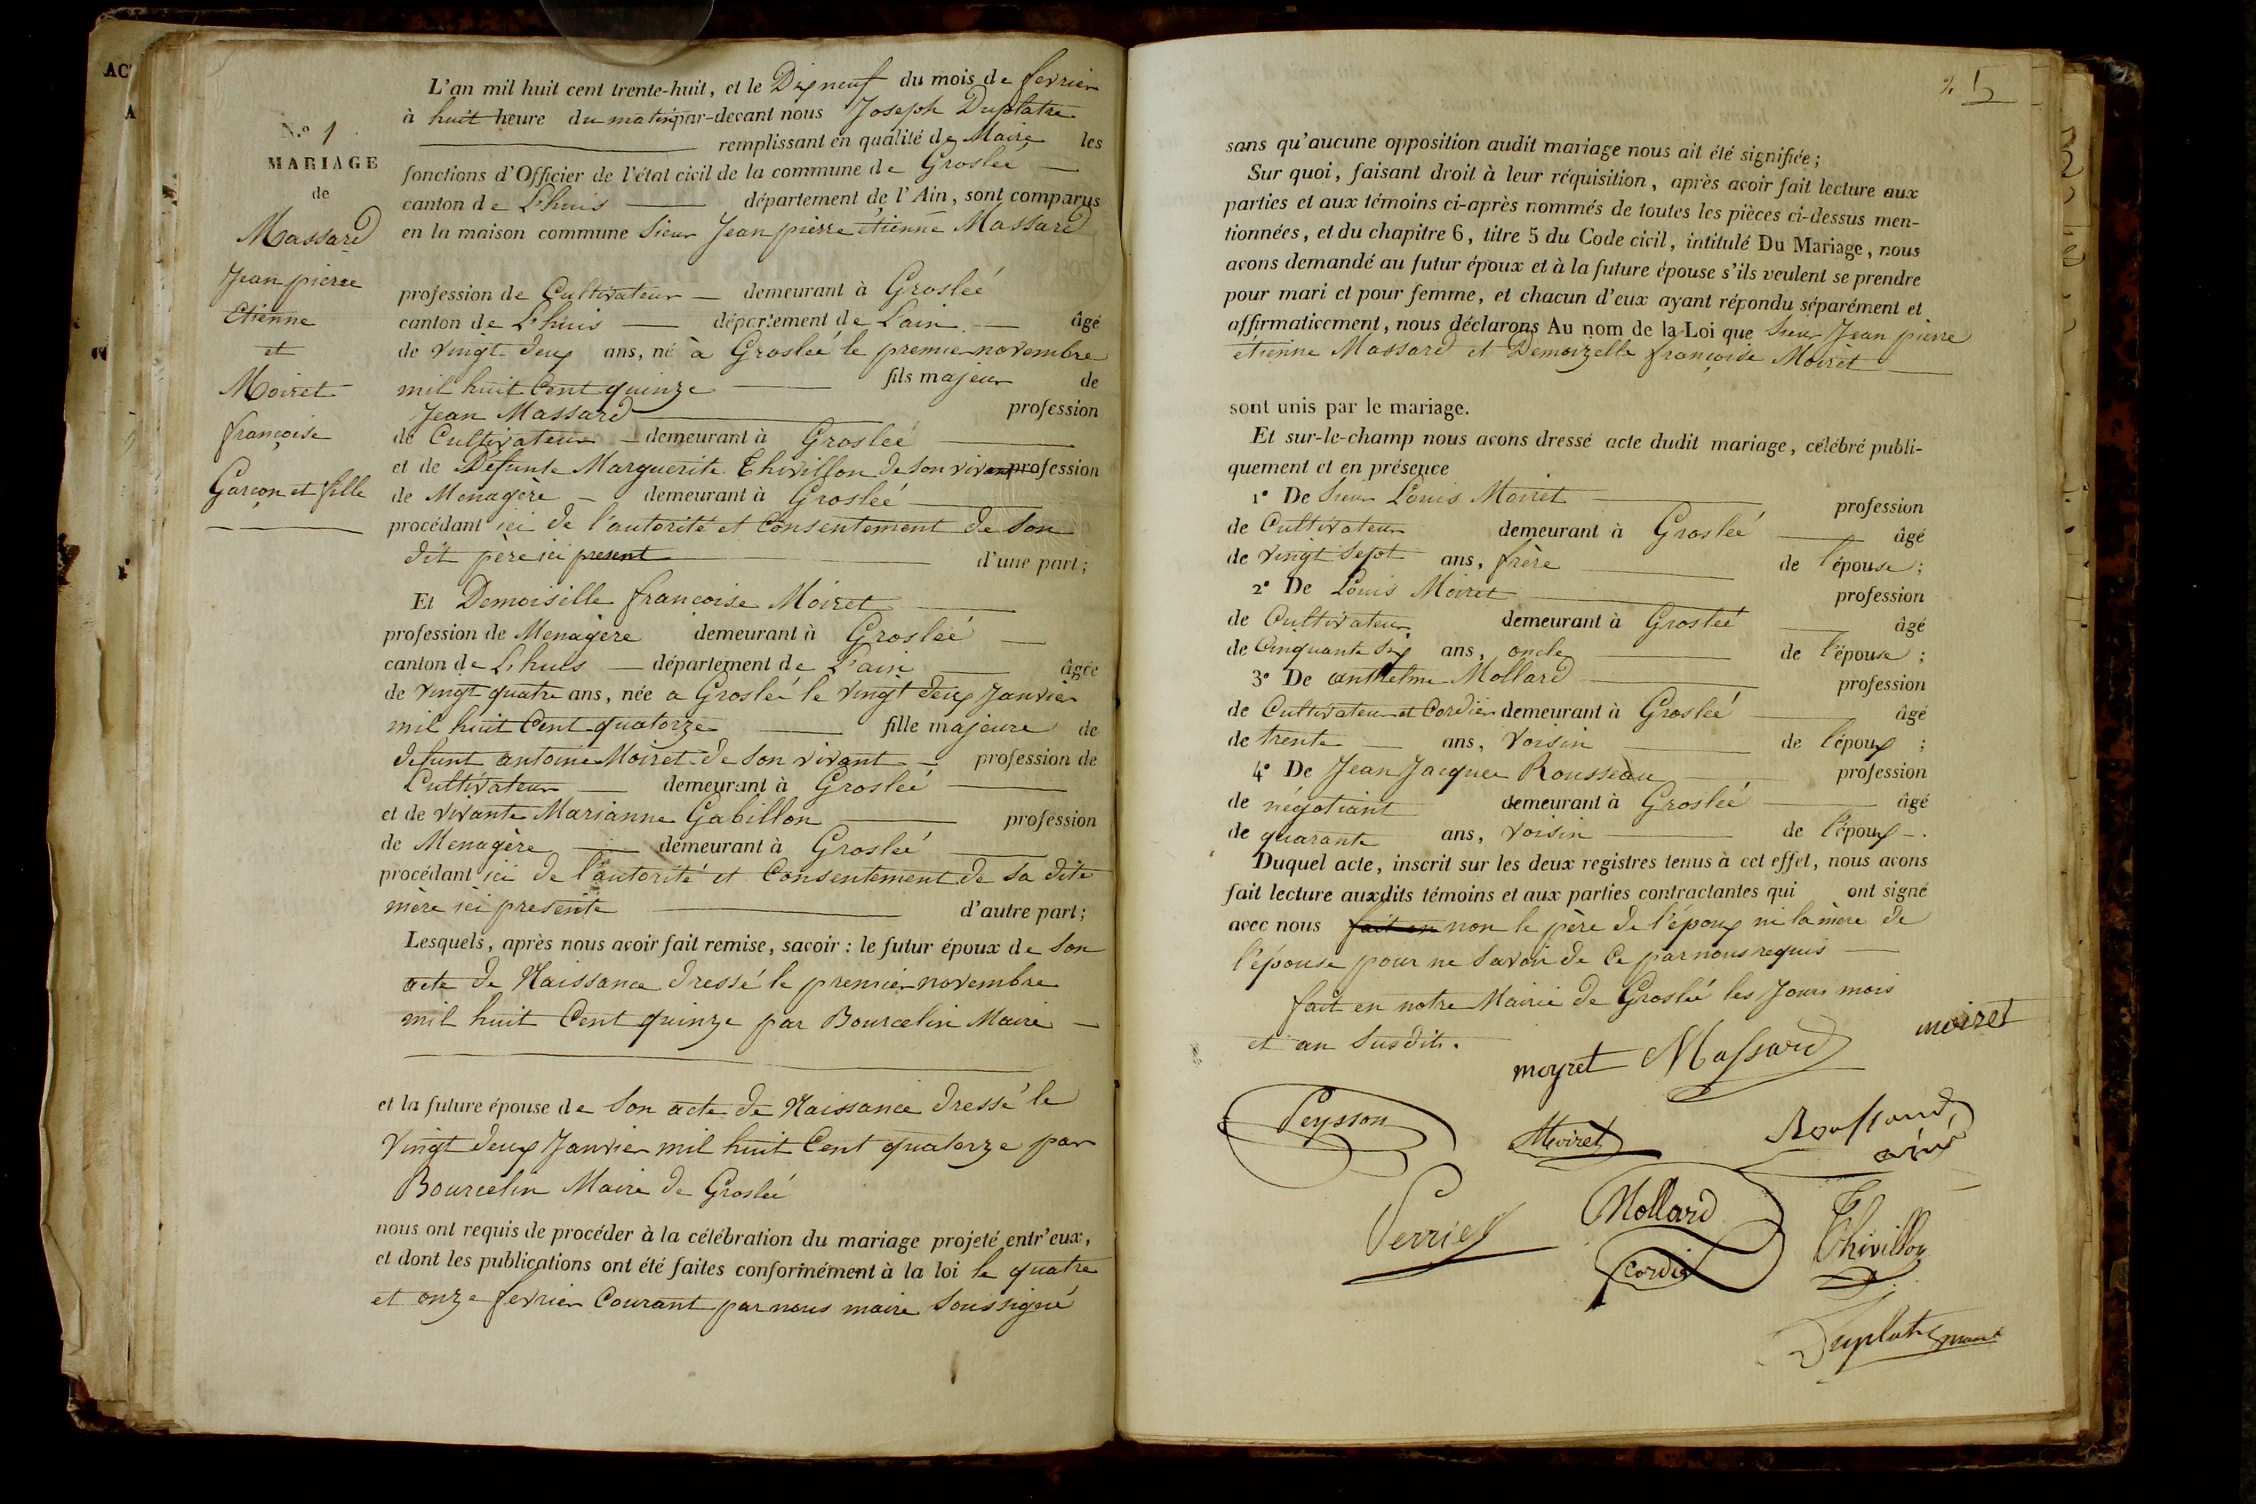 AC
A
N.º 1
MARIAGE
de
Massard
Jean pierre
Etienne
et
Moiret
françoise
Garçon et fille
L'an mil huit cent trente-huit, et le Dix neuf du mois de fevrier
à huit heure du matin par-devant nous Joseph Duplatre
remplissant en qualité de Maire les
fonctions d'Officier de l'état civil de la commune de Grosleé
canton de L'huis département de l'Ain, sont comparus
en la maison commune Sieur Jean pierre étienne Massard
profession de Cultivateur demeurant à Grosleé
canton de L'huis département de L'ain âgé
de vingt deux ans, né à Grosleé le premier novembre
mil huit Cent quinze fils majeur de
Jean Massard profession
de Cultivateur demeurant à Grosleé
et de Défunte Marguerite Thivillon de son vivant profession
de Menagère demeurant à Grosleé
procédant ici de l'autorité et Consentement de Son
dit père ici present d'une part;
Et Demoiselle françoise Moiret
profession de Menagère demeurant à Grosleé
canton de L'huis département de L'ain âgée
de vingt quatre ans, née a Grosleé le vingt deux Janvier
mil huit Cent quatorze fille majeure de
defunt antoine Moiret de Son vivant profession de
Cultivateur demeurant à Grosleé
et de vivante Marianne Gabillon profession
de Menagère demeurant à Grosleé
procédant ici de l'autorité et Consentement de Sa dite
mère ici presente d'autre part;
Lesquels, après nous avoir fait remise, savoir : le futur époux de Son
acte de Naissance dressé le premier novembre
mil huit Cent quinze par Bourcelin Maire
et la future épouse de Son acte de Naissance dressé le
Vingt deux Janvier mil huit Cent quatorze par
Bourcelin Maire de Grosleé
nous ont requis de procéder à la célébration du mariage projeté entr'eux,
et dont les publications ont été faites conformément à la loi le quatre
et onze fevrier Courant par nous maire Soussigné
sans qu'aucune opposition audit mariage nous ait été signifiée;
Sur quoi, faisant droit à leur réquisition, après avoir fait lecture aux
parties et aux témoins ci-après nommés de toutes les pièces ci-dessus men-
tionnées, et du chapitre 6, titre 5 du Code civil, intitulé Du Mariage, nous
avons demandé au futur époux et à la future épouse s'ils veulent se prendre
pour mari et pour femme, et chacun d'eux ayant répondu séparément et
affirmativement, nous déclarons Au nom de la Loi que Sieur Jean pierre
etienne Massard et Demoizelle françoise Moiret
sont unis par le mariage.
Et sur-le-champ nous avons dressé acte dudit mariage, célébré publi-
quement et en présence
1º De Sieur Louis Moiret profession
de Cultivateur demeurant à Grosleé âgé
de vingt Sept ans, frère de l'épouse;
2º De Louis Moiret profession
de Cultivateur demeurant à Grosleé âgé
de Cinquante Six ans, oncle de l'épouse;
3º De anthelme Mollard profession
de Cultivateur et Cordier demeurant à Grosleé âgé
de trente ans, voisin de l'époux;
4º De Jean Jacques Rousseau profession
de négotiant demeurant à Grosleé âgé
de quarante ans, voisin de l'époux.
Duquel acte, inscrit sur les deux registres tenus à cet effet, nous avons
fait lecture auxdits témoins et aux parties contractantes qui ont signé
avec nous fait en non le père de l'époux ni la mère de
l'épouse pour ne Savoir de Ce par nous requis
fait en notre Mairie de Grosleé les Jours mois
et an Susdits.
moyret Massard moiret
Peysson Moiret
Perrier Mollard Thivillon
Cordier
Duplatre maire